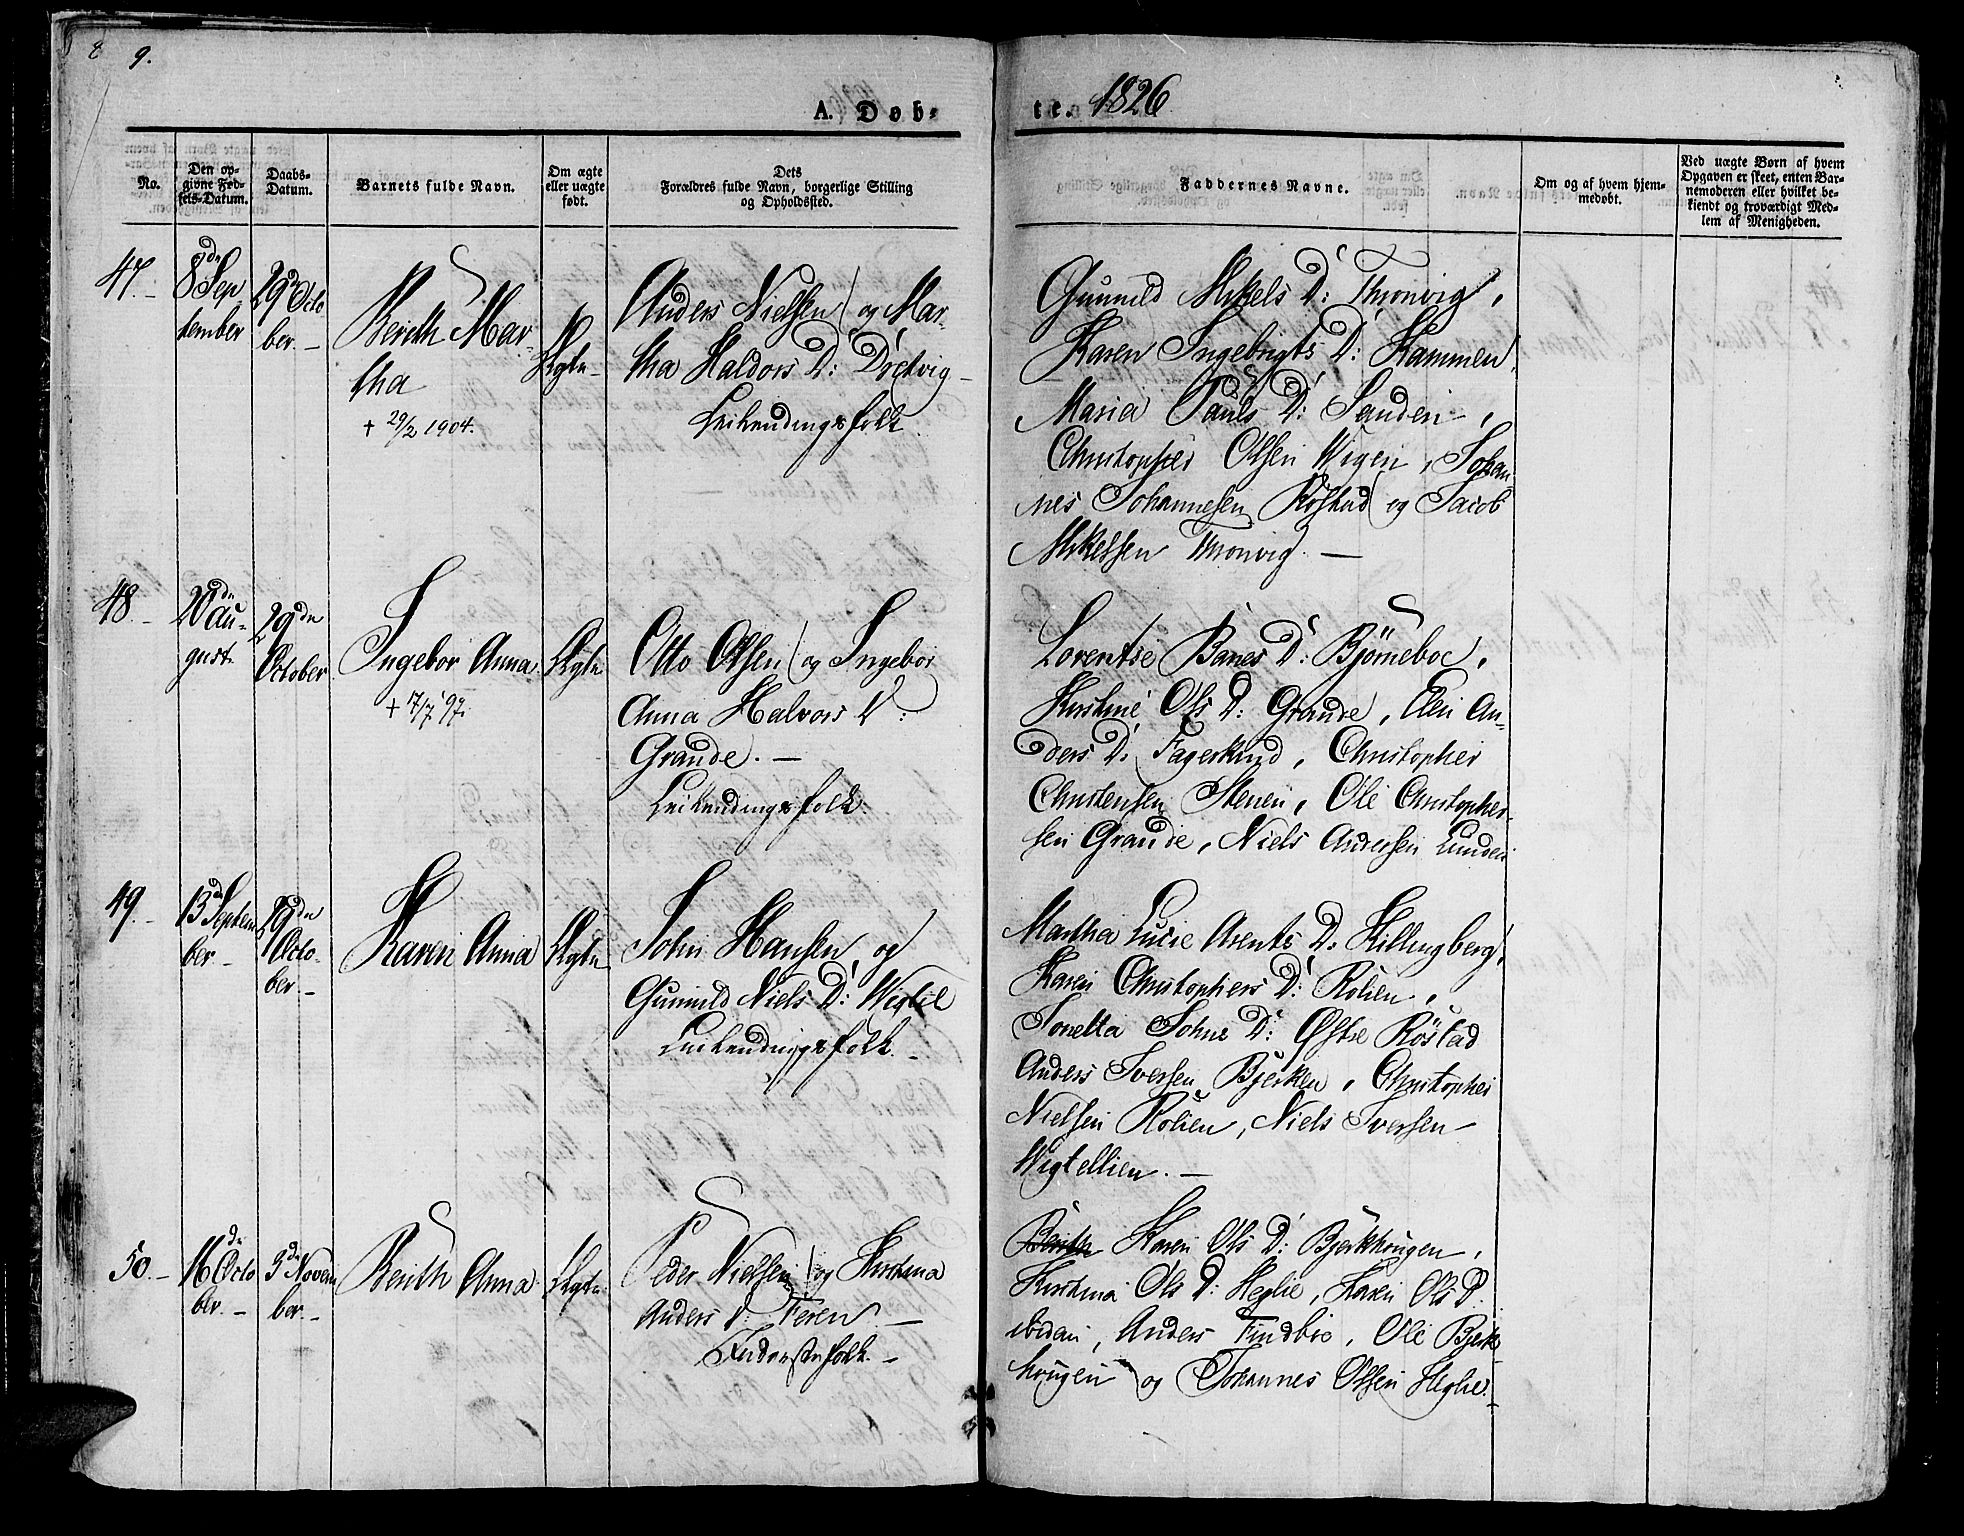 8 9.
A. Døb-
te. 1826
No.
Den op-
givne Fød-
sels-Datum.
Daabs-
Datum.
Barnets fulde Navn.
Om ægte
eller uægte
født.
Dets
Forældres fulde Navn, borgerlige Stilling
og Opholdssted.
Faddernes Navne.
Om og af hvem hjem-
medøbt.
Ved uægte Børn af hvem
Opgaven er skeet, enten Bar-
nemoderen eller hvilket be-
kiendt og troværdigt Med-
lem af Menigheden.
47.-
8de Sep
tember
29de Octo
ber.-
Berith Mar-
tha
+ 29/2 1904.
Ægte-
Anders Nielsen og Mar-
tha Haldors D: Dretvig-
Leilendingsfolk.
Gunnild Mikels D: Thronvig,
Karen Ingebrigts D: Hammen,
Maria Pauls D: Sanden-,
Christopher Olsen Wigen, Johan-
nes Johannesen Røstad og Jacob
Mikelsen Thronvig.-
48.-
20de Au-
gust.
29de
October
Ingebor Anna.
+ 17/7 97.
Ægte
Otto Olsen og Ingebor
Anna Halvors D:
Grande.-
Leilendingsfolk.
Lorentse Banes D: Bjørneboe,
Kirstine Ols D: Grande, Elen An-
ders D: Fagerlund, Christopher
Christensen Stenen, Ole Christopher-
sen Grande, Niels Andersen Lunden
49.-
13de Septem
ber-
29de
Octo-
ber.-
Karen Anna
Ægte
John Hansen og
Gunnild Niels D: Wigtel
Leilendingsfolk.-
Martha Lucie Arents D: Killingberg,
Karen Christophers D: Rolien,
Jonetta Johns D: Østre Røstad
Anders Iversen Bjerken, Christopher
Nielsen Rolien, Niels Iversen-
Wigtellien.-
50.-
16de Octo
ber.-
5de Novem
ber.-
Berith Anna
Ægte.
Peder Nielsen og Kirstina
Anders D: Feren-
Inderstfolk.-
Berith Karen Ols D: Bjerkhougen,
Kirstina Ols D: Heglie, Karen Ols D.
ibidem, Anders Findboe, Ole Bjerk-
hougen og Johannes Olsen Heglie.-